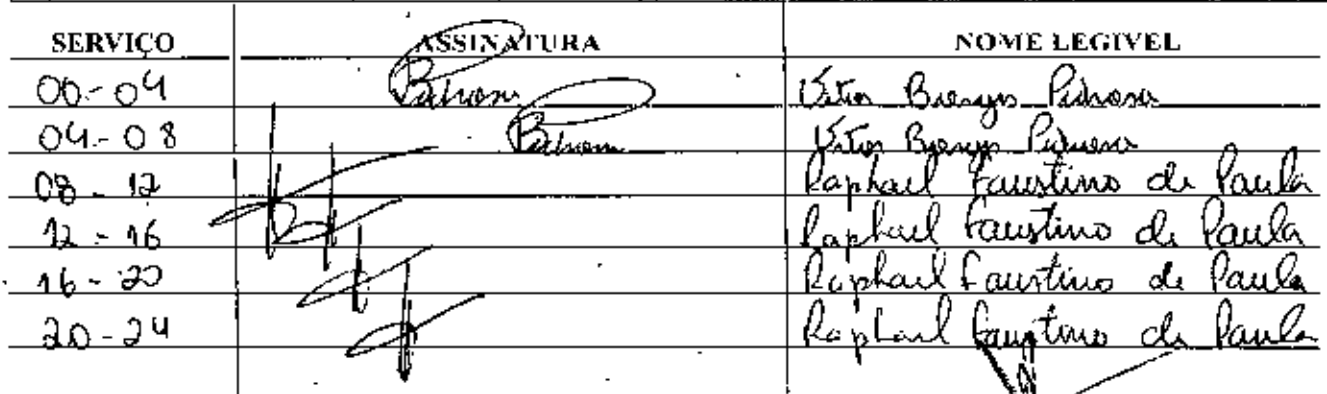 SERVIÇO ASSINATURA NOME LEGIVEL
00-04 Vitor Pedrosa
04-08 Vitor
08-12 Raphael Faustino de Paula
12-16 Raphael Faustino de Paula
16-20 Raphael Faustino de Paula
20-24 Raphael Faustino de Paula